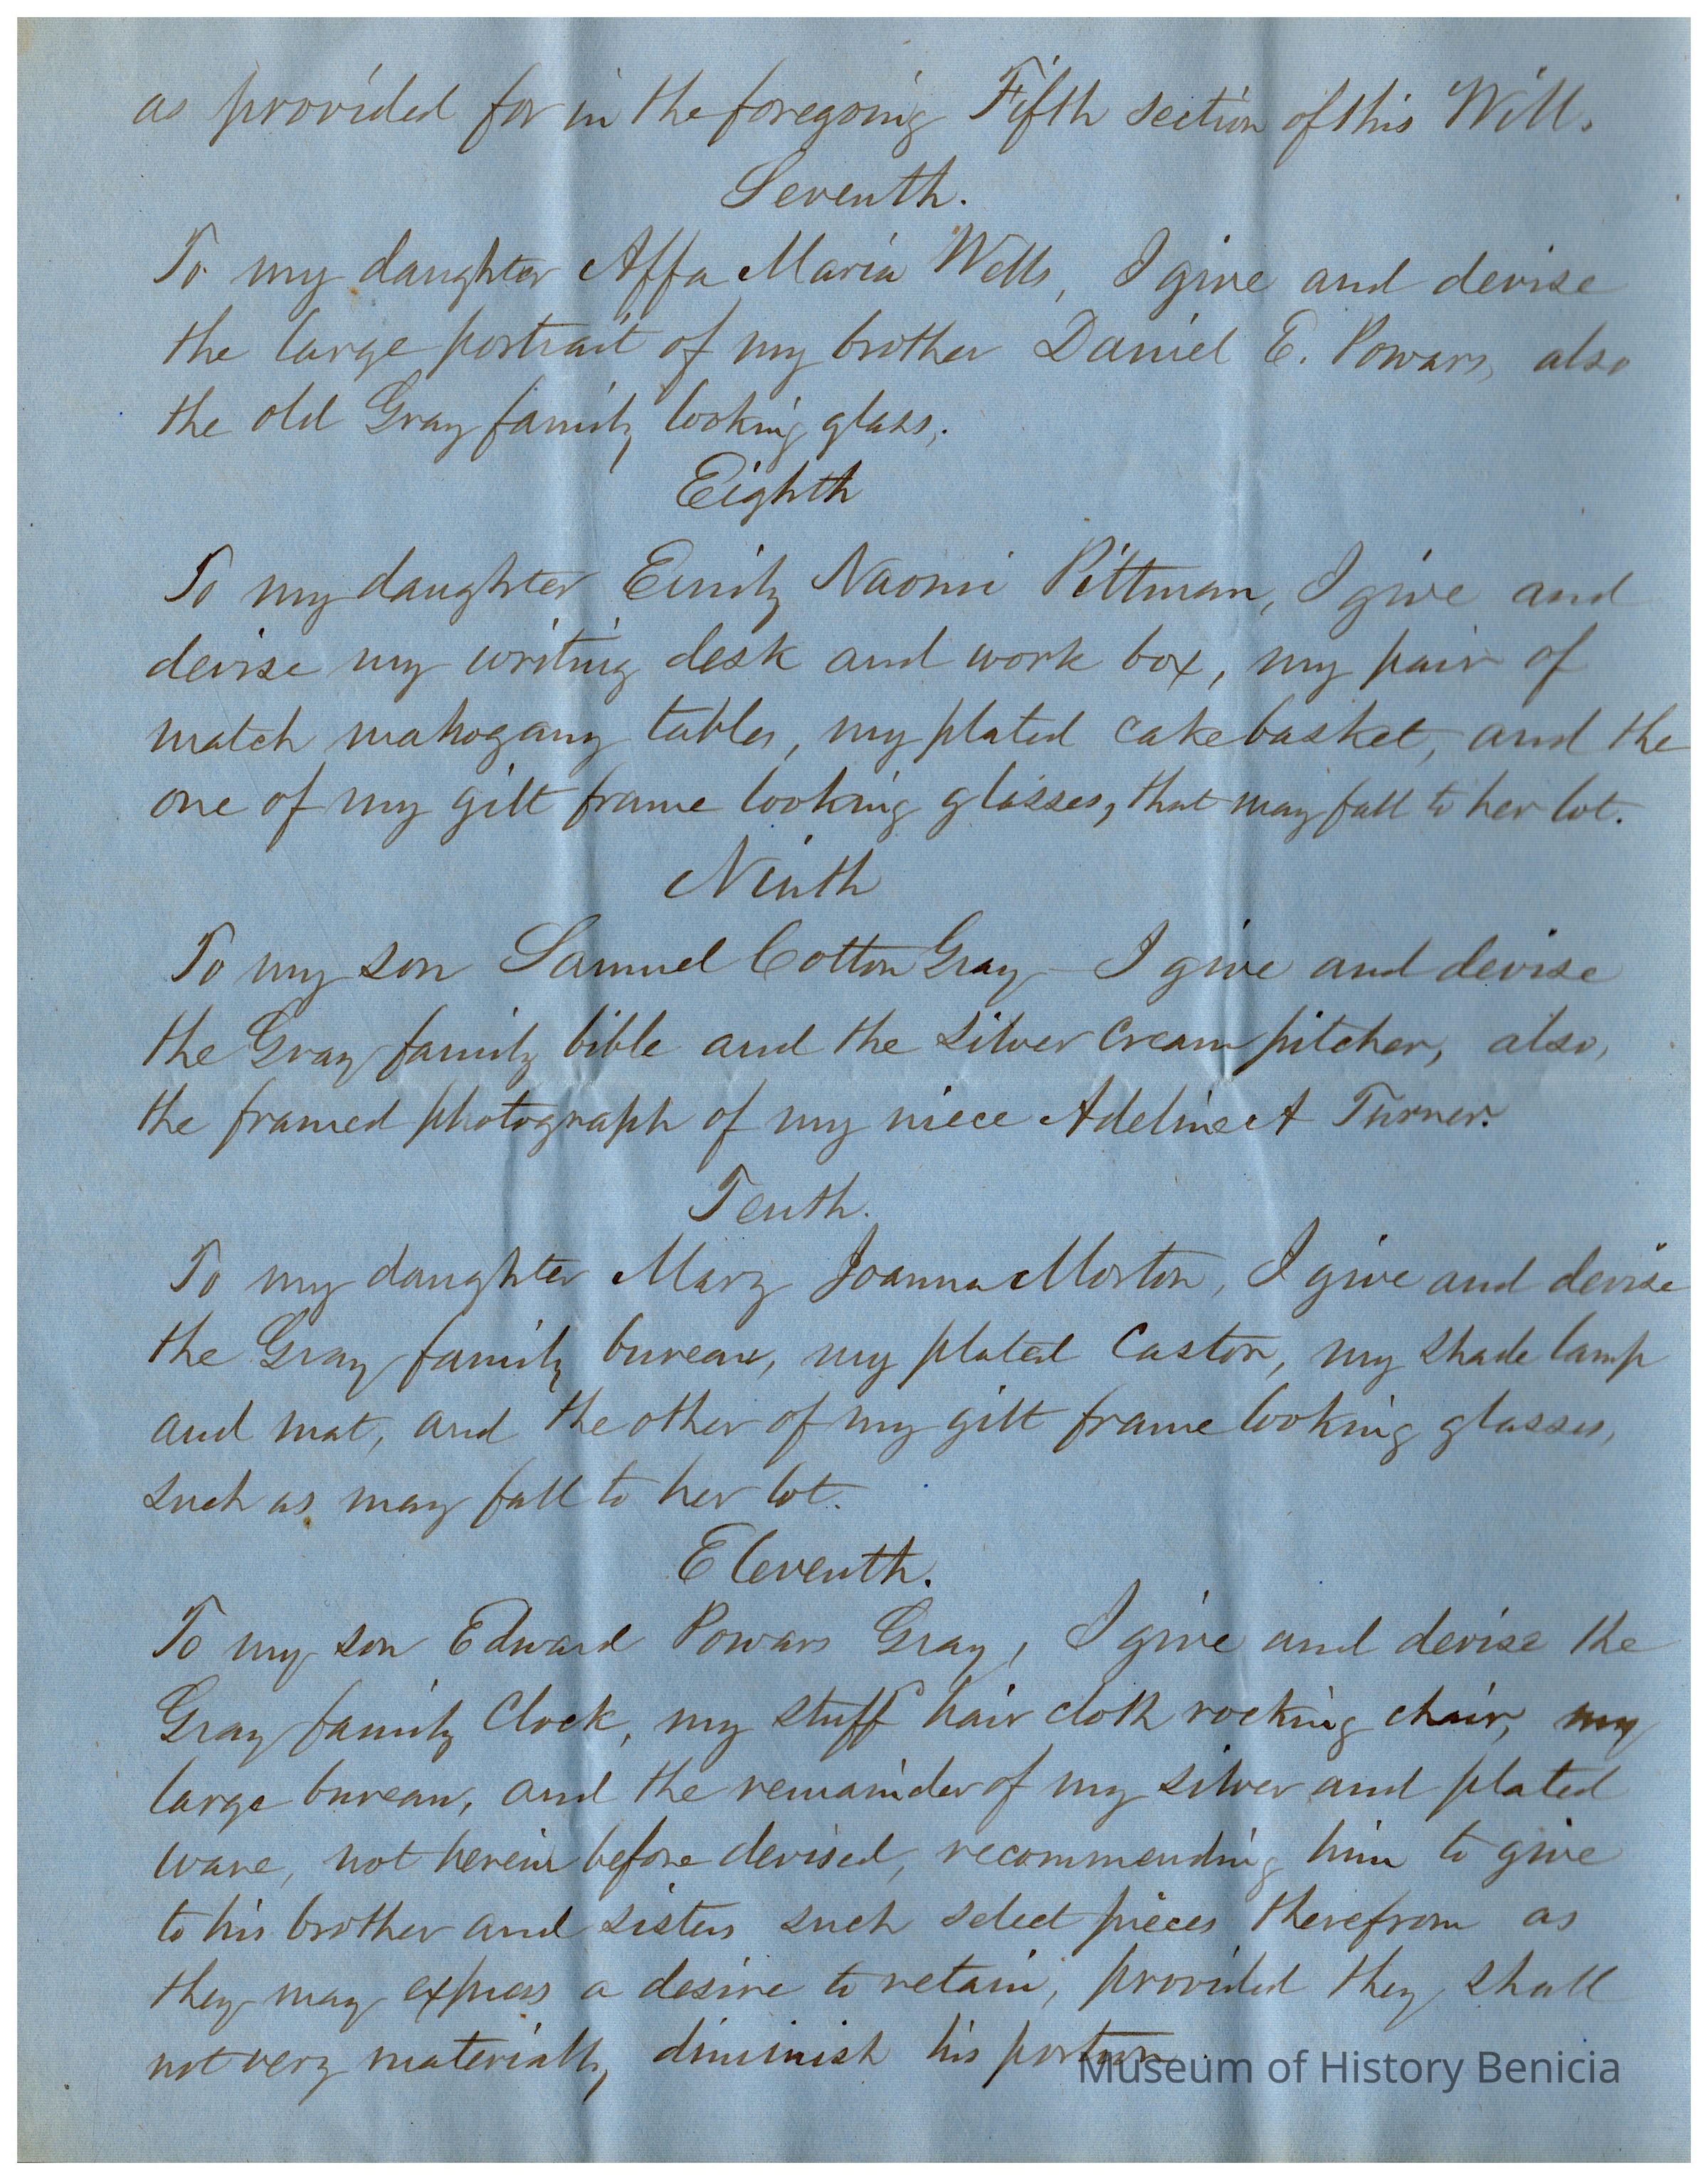 as provided for in the foregoing Fifth section of this Will.
Seventh.
To my daughter Affa Maria Wells, I give and devise
the large portrait of my brother Daniel E. Powars, also
the old Gray family looking glass.
Eighth
To my daughter Emily Naomi Pittman, I give and
devise my writing desk and work box, my pair of
match mahogany tables, my plated cake basket, and the
one of my gilt frame looking glasses, that may fall to her lot.
Ninth
To my son Samuel Cotton Gray I give and devise
the Gray family bible and the silver cream pitcher, also,
the framed photograph of my niece Adeline A Turner.
Tenth.
To my daughter Mary Joanna Morton, I give and devise
the Gray family bureau, my plated Castor, my shade lamp
and mat, and the other of my gilt frame looking glasses,
such as may fall to her lot.
Eleventh.
To my son Edward Powars Gray, I give and devise the
Gray family Clock, my stuff hair cloth rocking chair, my
large bureau, and the remainder of my silver and plated
ware, not herein before devised, recommending him to give
to his brother and sisters such select pieces therefrom as
they may express a desire to retain, provided they shall
not very materially diminish his portion.
Museum of History Benicia